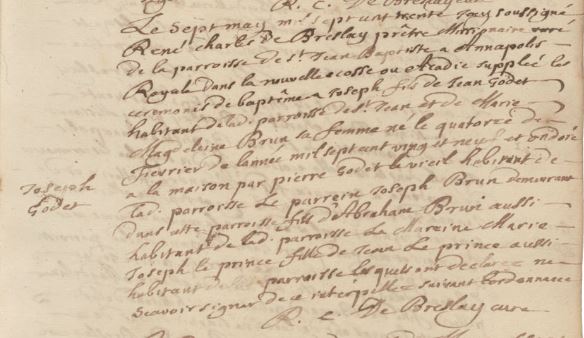 R. C. De Breslay curé
Le sept may mil sept cent trente Jay soussigné
René charles De Breslay prêtre Missionaire curé
de la parroisse de st. Jean Baptiste a Annapolis
Royale dans la nouvelle ecosse ou Acadie supplée les
ceremonies de baptême a Joseph fils de Jean Godet
habitant de lad. parroisse de st. Jean et de Marie
Magdeleine Brun sa femme né le quatorze de
fevrier de lannée mil sept cent vingt et neuf et ondoie
a la maison par pierre Godet le vieil habitant de
Joseph
Godet
lad. parroisse Le parrein Joseph Brun demeurant
dans cette parroisse fils de Abraham Brun aussi
habitant de lad. parroisse La Mareine Marie
Joseph le prince fille de Jean Le prince aussi
habitant parroisse lesquels ont declaré ne
scavoir signer de ce interpellés suivant Lordonnance
R. C. De Breslay curé